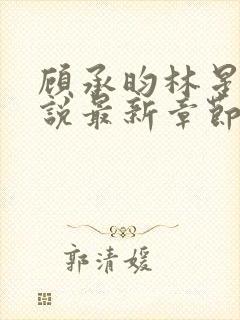 顾承昀林星
說最新章節
郭清媛